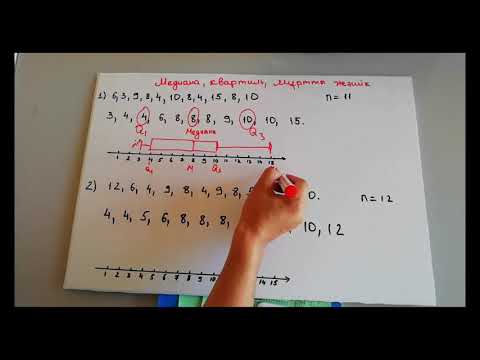 Медиана, квартиль, мұртты жәшік
1) 6, 3, 9, 8, 4, 10, 8, 4, 15, 8, 10 n = 11
3, 4, 4, 6, 8, 8, 8, 9, 10, 10, 15.
Q1 Медиана Q3
1 2 3 4 5 6 7 8 9 10 11 12 13 14 15
Q1 M Q3
2) 12, 6, 4, 9, 8, 4, 9, 8, 0. n = 12
4, 4, 5, 6, 8, 8, 8, 10, 12
1 2 3 4 5 6 7 8 9 10 11 12 13 14 15